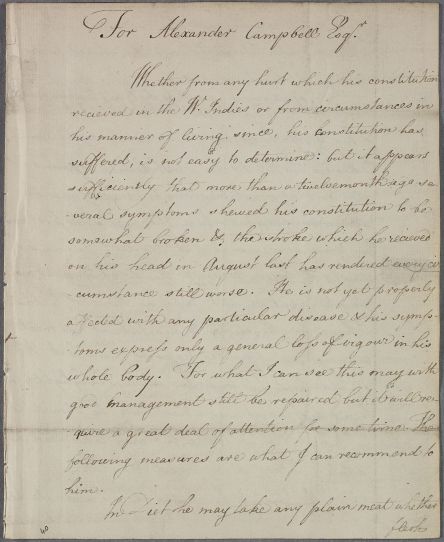 For Alexander Campbell Esqr.
Whether from any hurt which his constitution
recieved in the Wt. Indies or from circumstances in
his manner of living since, his constitution has
suffered, is not easy to determine: but it appears
sufficiently that more than a twelvemonth ago se
-veral symptoms shewed his constitution to be
somewhat broken &, the stroke which he recieved
on his head in August last has rendered every cir
-cumstance still worse. He is not yet properly
affected with any particular disease & his symp-
-toms express only a general loss of vigour in his
whole body. For what I can see this may with
good management still be repaired but it will re-
-quire a great deal of attention for some time. The
following measures are what I can recommend to
him.
In Diet he may take any plain meat whether
flesh
40